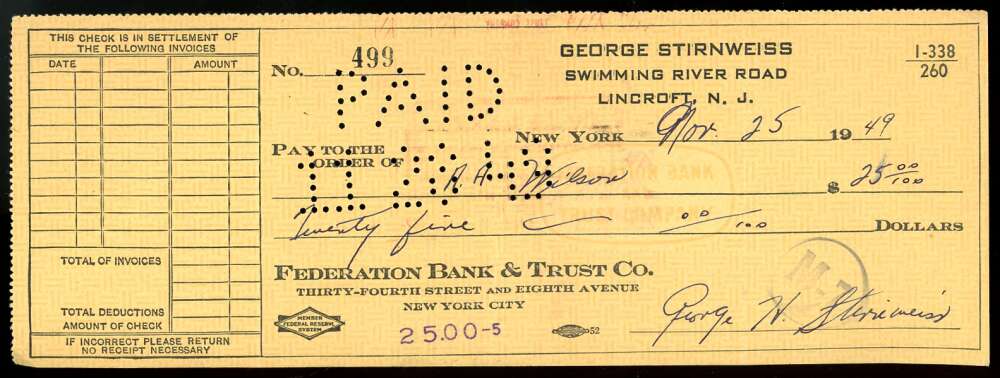 THIS CHECK IS IN SETTLEMENT OF
THE FOLLOWING INVOICES
DATE AMOUNT
TOTAL OF INVOICES
TOTAL DEDUCTIONS
AMOUNT OF CHECK
IF INCORRECT PLEASE RETURN
NO RECEIPT NECESSARY
No. 499
GEORGE STIRNWEISS
SWIMMING RIVER ROAD
LINCROFT, N. J.
1-338
260
PAID
NEW YORK Nov. 25 1949
PAY TO THE
ORDER OF A. A. Wilson $ 25 00/100
Twenty five 00/100 DOLLARS
FEDERATION BANK & TRUST CO.
THIRTY-FOURTH STREET AND EIGHTH AVENUE
NEW YORK CITY
MEMBER
FEDERAL RESERVE
SYSTEM
25.00-5
52
George H. Stirnweiss